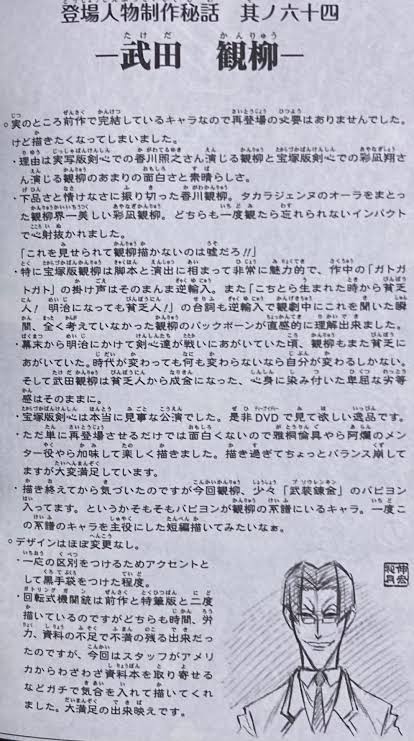 登場人物制作秘話 其ノ六十四
―武田 観柳―
○実のところ前作で完結しているキャラなので再登場の必要はありませんでした。
けど描きたくなってしまいました。
・理由は実写版剣心での香川照之さん演じる観柳と宝塚版剣心での彩凪翔さ
ん演じる観柳のあまりの面白さと素晴らしさ。
・下品さと情けなさに振り切った香川観柳。タカラジェンヌのオーラをまとっ
た観柳界一美しい彩凪観柳。どちらも一度観たら忘れられないインパクト
で心射抜かれました。
「これを見せられて観柳描かないのは嘘だろ!!」
・特に宝塚版観柳は脚本と演出に相まって非常に魅力的で、作中の「ガトガ
トガト」の掛け声はそのまんま逆輸入。また「こちとら生まれた時から貧乏
人!明治になっても貧乏人!」の台詞も逆輸入で観劇中にこれを聞いた瞬
間、全く考えていなかった観柳のバックボーンが直感的に理解出来ました。
・幕末から明治にかけて剣心達が戦いにあがいていた頃、観柳もまた貧乏に
あがいていた。時代が変わっても何も変わらないなら自分が変わるしかない。
そして武田観柳は貧乏人から成金になった、心身に染み付いた卑屈な劣等
感はそのままに。
・宝塚版剣心は本当に見事な公演でした。是非DVDで観て欲しい逸品です。
・ただ単に再登場させるだけでは面白くないので雅桐倫具や阿爛のメン
ター役やら加味して楽しく描きました。描き過ぎてちょっとバランス崩し
てますが大変満足しています。
・描き終えてから気づいたのですが今回観柳、少々「武装錬金」のパピヨン
入ってます。というかそもそもパピヨンが観柳の系譜にいるキャラ。一度こ
の系譜のキャラを主役にした短編描いてみたいなぁ。
○デザインはほぼ変更なし。
・一応の区別をつけるためアクセントと
して黒手袋をつけた程度。
・回転式機関銃は前作と特筆版と二度
描いているのですがどちらも時間、労
力、資料の不足で不満の残る出来だっ
たのですが、今回はスタッフがアメリ
カからわざわざ資料本を取り寄せる
などガチで気合を入れて描いてくれ
ました。大満足の出来映えです。